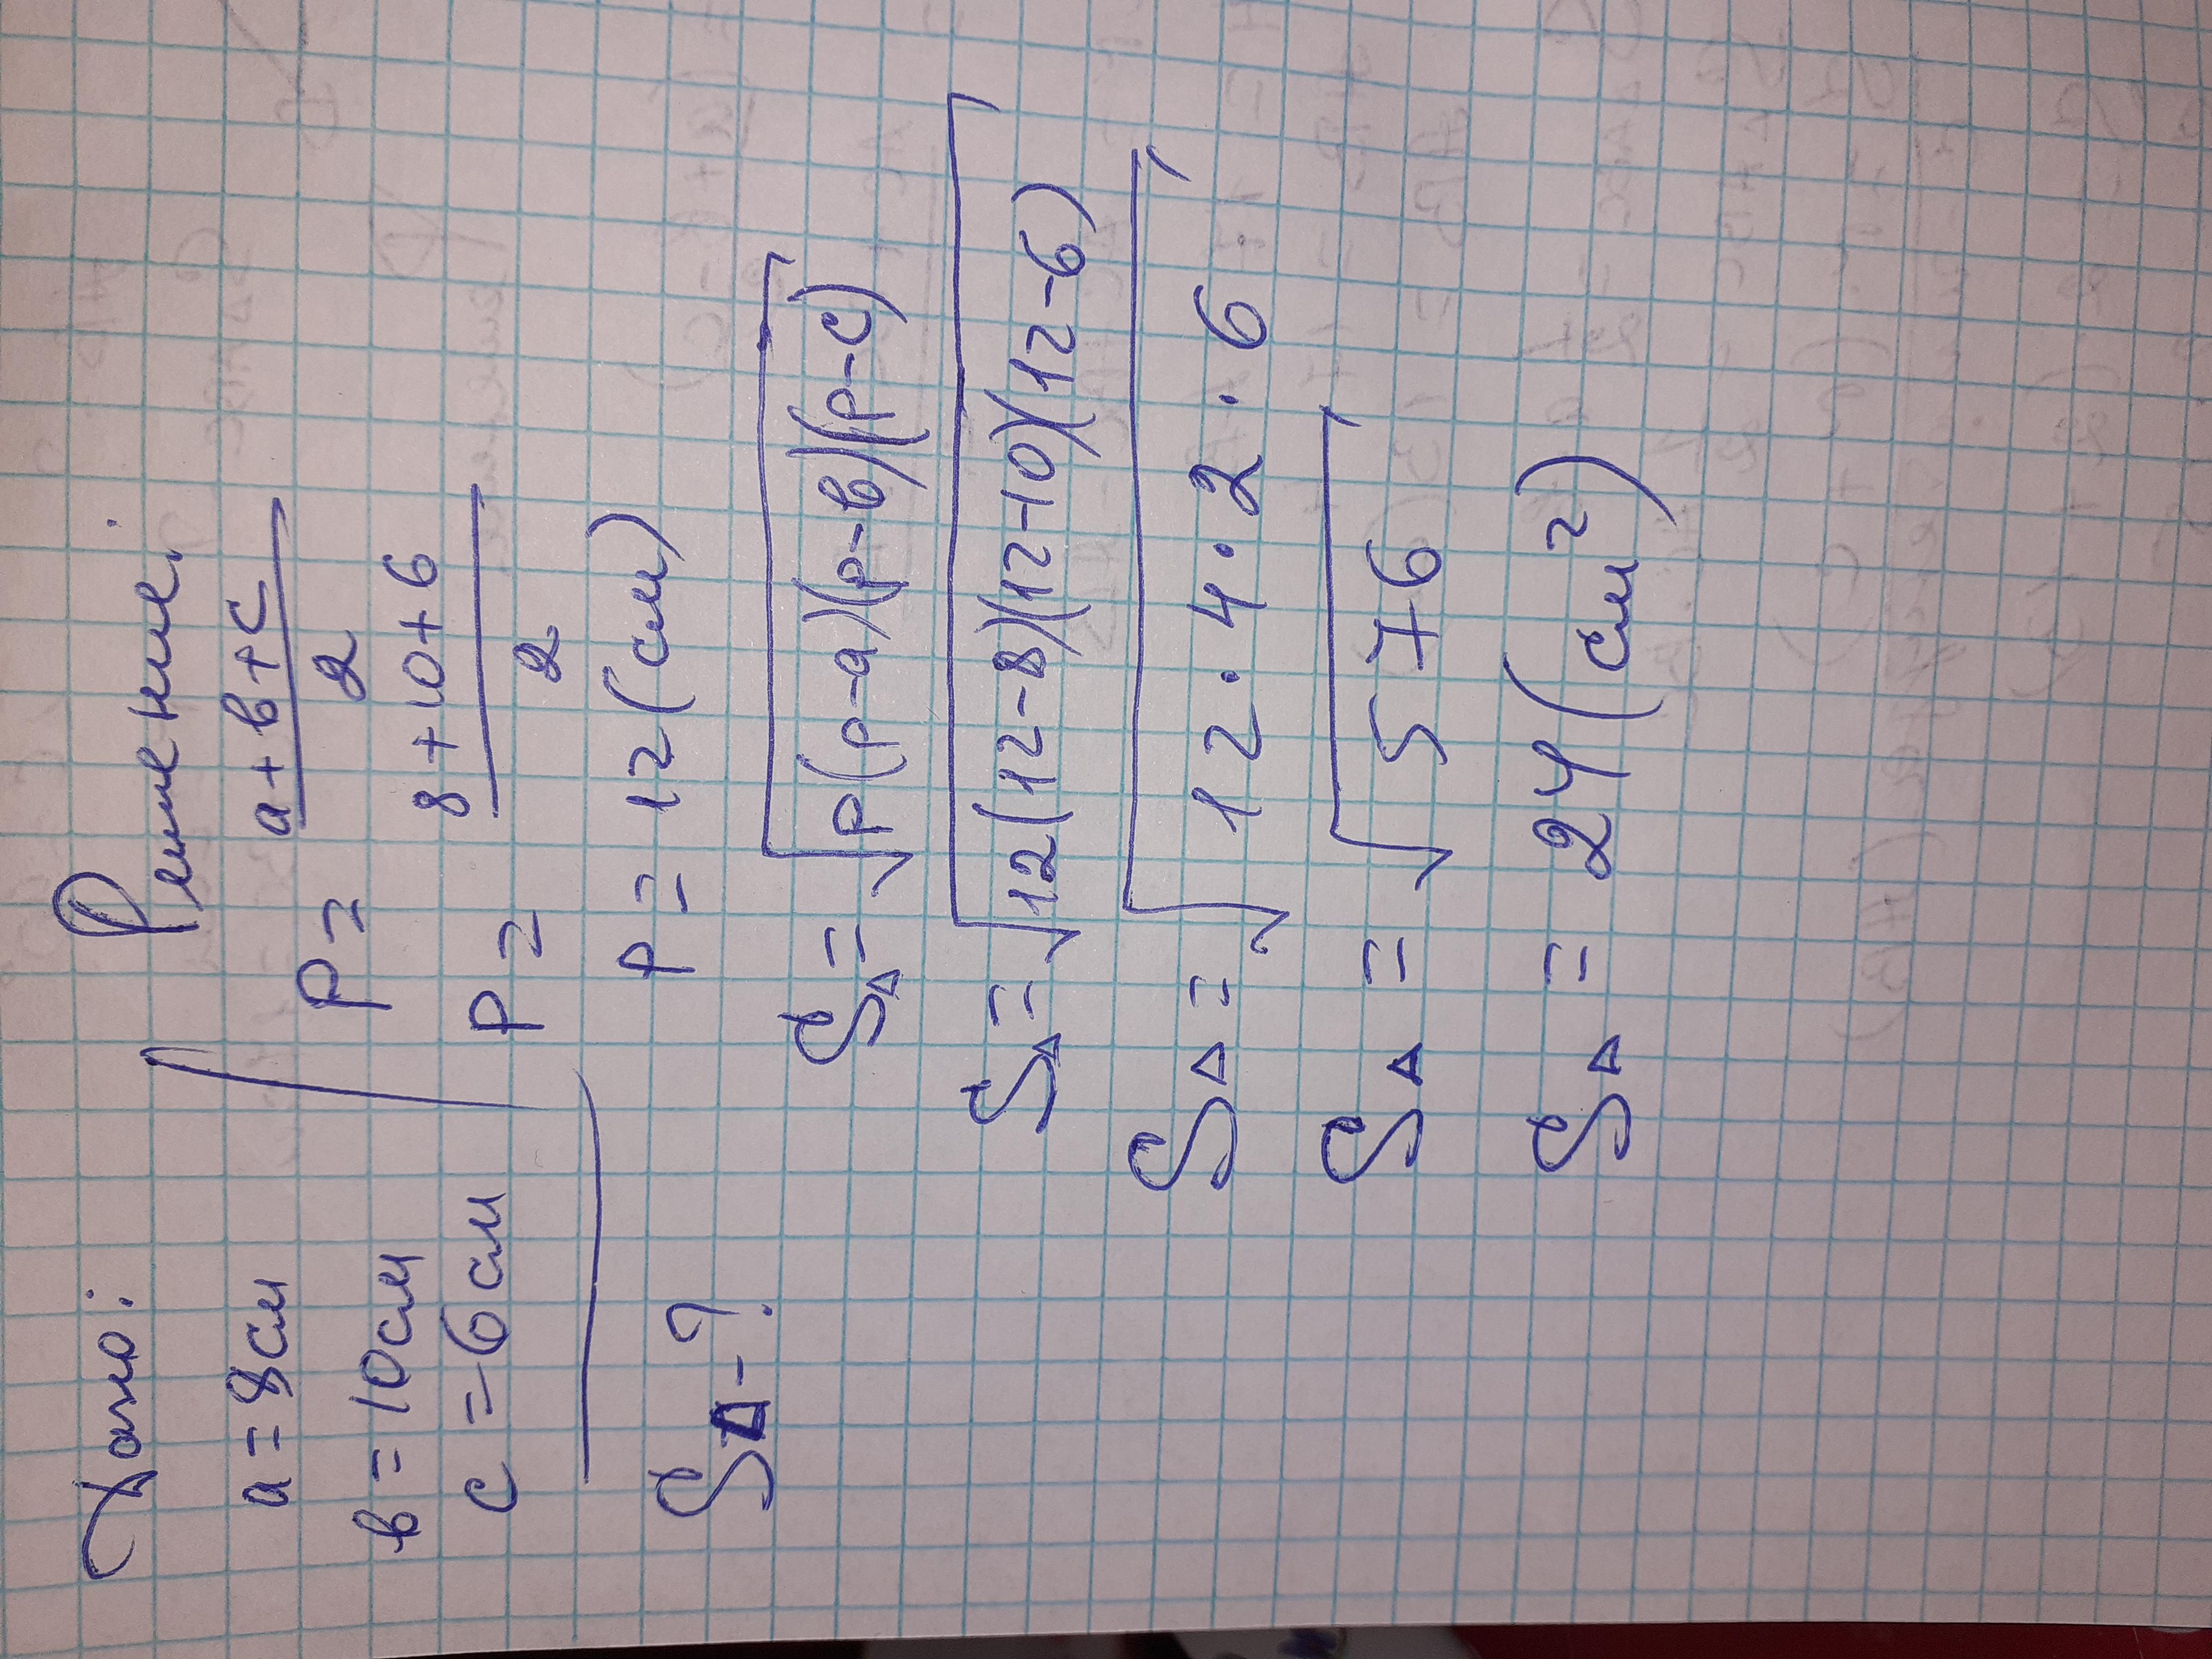 Дано:
a = 8 см
в = 10 см
c = 6 см
S△ - ?
Решение:
p = (a + в + c) / 2
p = (8 + 10 + 6) / 2
p = 12 (см)
S△ = √p(p-a)(p-в)(p-c)
S△ = √12(12-8)(12-10)(12-6)
S△ = √12 · 4 · 2 · 6
S△ = √576
S△ = 24 (см²)